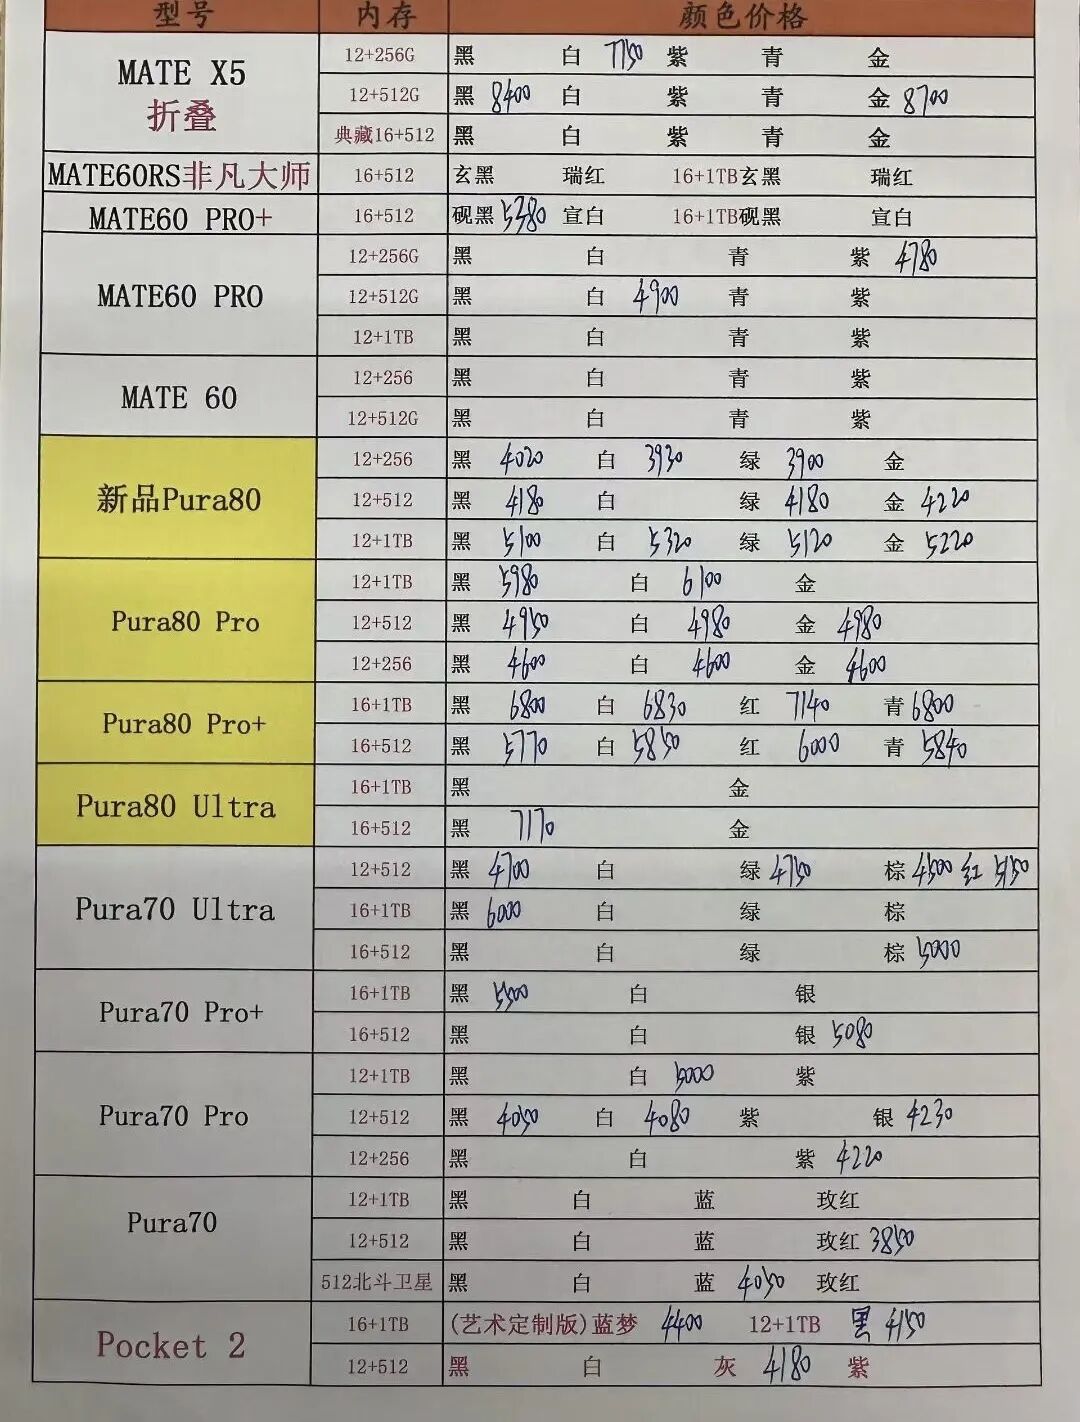 型号 内存 颜色价格
MATE X5 折叠
12+256G 黑 白 7750 紫 青 金
12+512G 黑 8400 白 紫 青 金 8700
典藏16+512 黑 白 紫 青 金
MATE60RS非凡大师 16+512 玄黑 瑞红 16+1TB玄黑 瑞红
MATE60 PRO+ 16+512 砚黑 5380 宣白 16+1TB砚黑 宣白
MATE60 PRO
12+256G 黑 白 青 紫 4780
12+512G 黑 白 4900 青 紫
12+1TB 黑 白 青 紫
MATE 60
12+256 黑 白 青 紫
12+512G 黑 白 青 紫
新品Pura80
12+256 黑 4020 白 3930 绿 3900 金
12+512 黑 4180 白 绿 4180 金 4220
12+1TB 黑 5100 白 5320 绿 5120 金 5220
Pura80 Pro
12+1TB 黑 5980 白 6100 金
12+512 黑 4950 白 4980 金 4980
12+256 黑 4600 白 4600 金 4600
Pura80 Pro+
16+1TB 黑 6800 白 6830 红 7140 青 6800
16+512 黑 5770 白 5850 红 6000 青 5840
Pura80 Ultra
16+1TB 黑 金
16+512 黑 7170 金
Pura70 Ultra
12+512 黑 4700 白 绿 4750 棕 4500 红 5150
16+1TB 黑 6000 白 绿 棕
16+512 黑 白 绿 棕 5000
Pura70 Pro+
16+1TB 黑 5500 白 银
16+512 黑 白 银 5080
Pura70 Pro
12+1TB 黑 白 5000 紫
12+512 黑 4050 白 4080 紫 银 4230
12+256 黑 白 紫 4220
Pura70
12+1TB 黑 白 蓝 玫红
12+512 黑 白 蓝 玫红 3850
512北斗卫星 黑 白 蓝 4050 玫红
Pocket 2
16+1TB (艺术定制版)蓝梦 4400 12+1TB 黑 4150
12+512 黑 白 灰 4180 紫